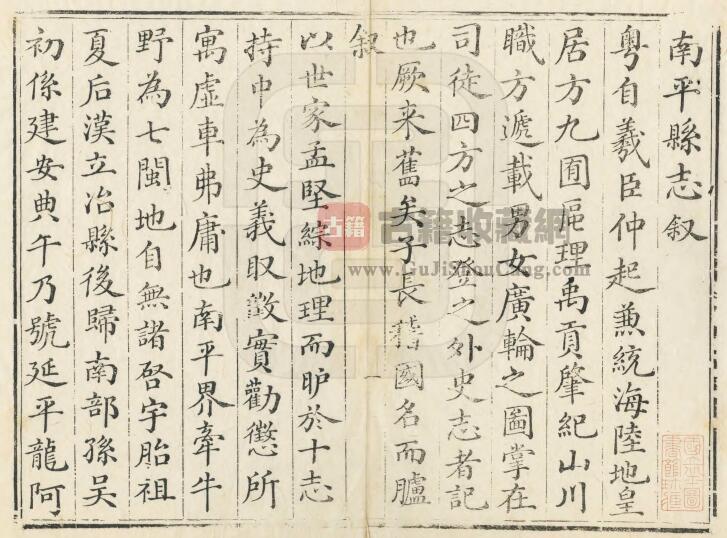 南平縣志叙
粤自羲臣仲起兼統海陸地皇
居方九囿區理禹貢肇紀山川
職方遞載男女廣輪之圖掌在
司徒四方之志登之外史志者記
也厥来舊矣子長耤國名而臚
叙
一
以世家孟堅綜地理而胪於十志
持中為史義取徵實勸懲所
寓虛車弗庸也南平界牽牛
野為七閩地自無諸啓宇胎祖
夏后漢立冶縣後歸南部孫吳
初係建安典午乃號延平龍阿
古籍
古籍收藏網
www.GuJiShouCang.com